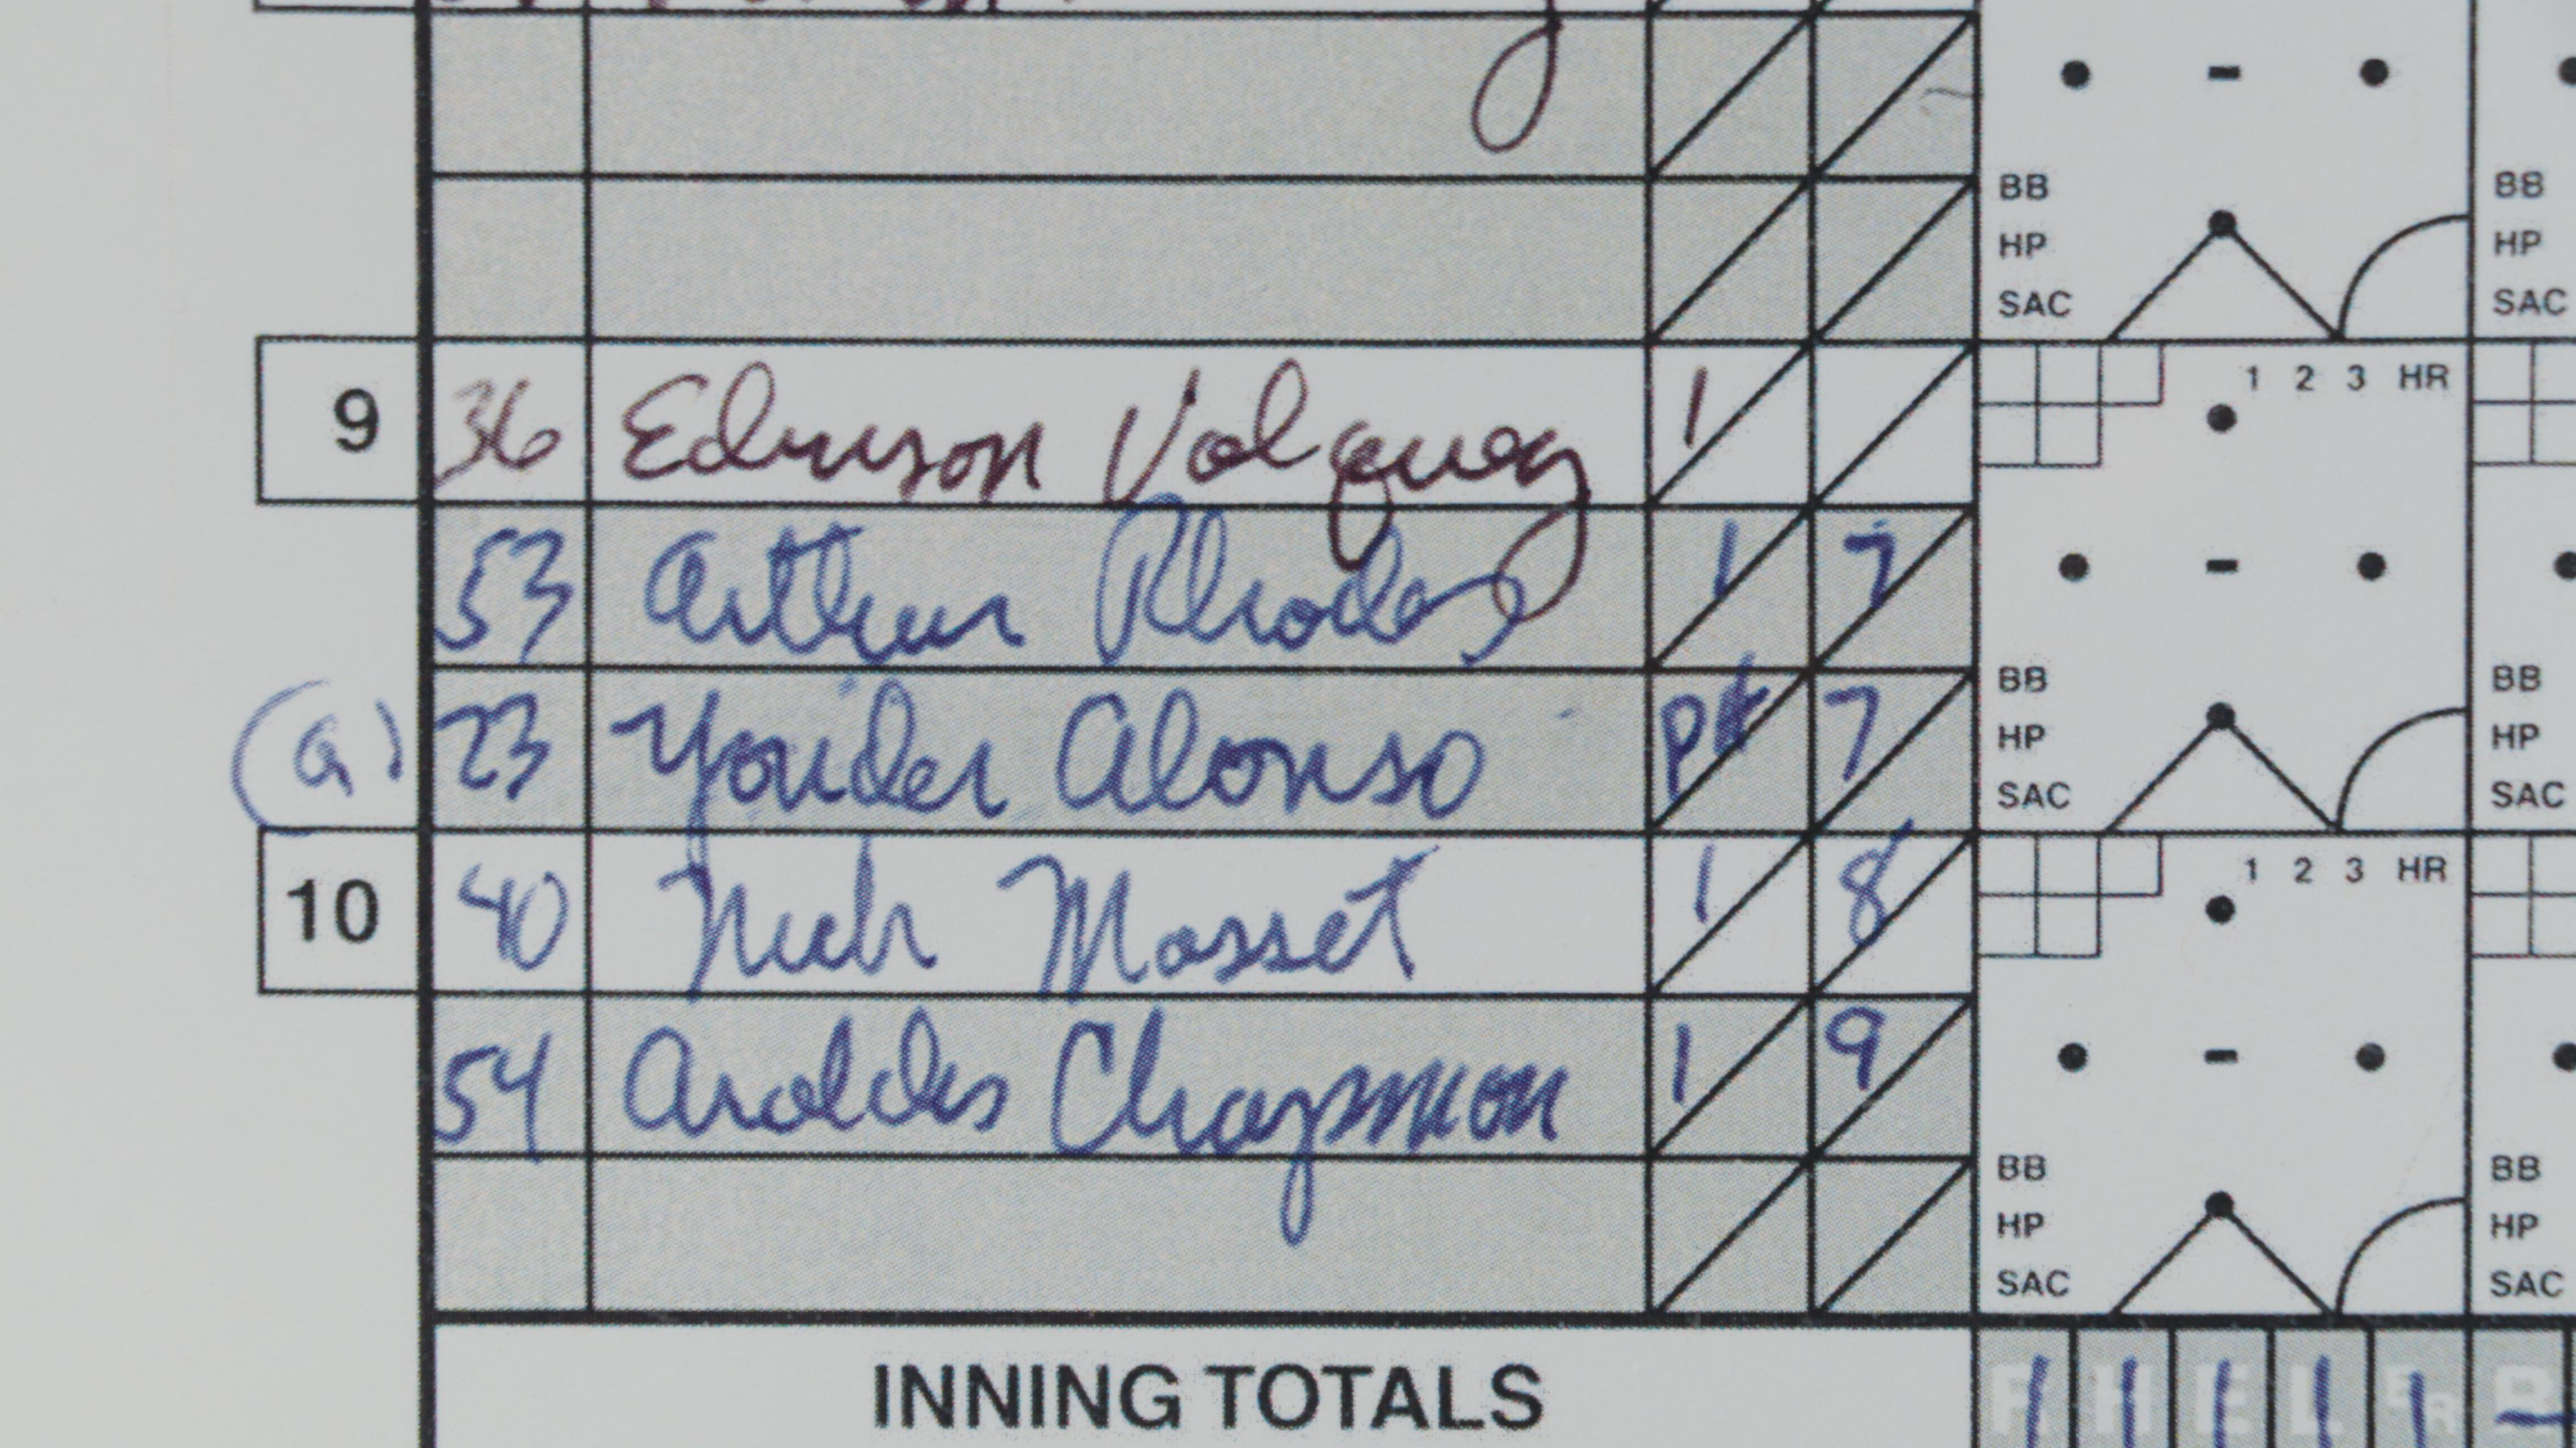 BB BB
HP HP
SAC SAC
9 36 Edinson Volquez 1 1 2 3 HR
53 Arthur Rhodes 1 7
BB BB
(a) 23 Yonder Alonso PH 7 HP HP
SAC SAC
10 40 Nick Masset 1 8 1 2 3 HR
54 Aroldis Chapman 1 9
BB BB
HP HP
SAC SAC
INNING TOTALS R H E L ER
1 1 1 1 1 -